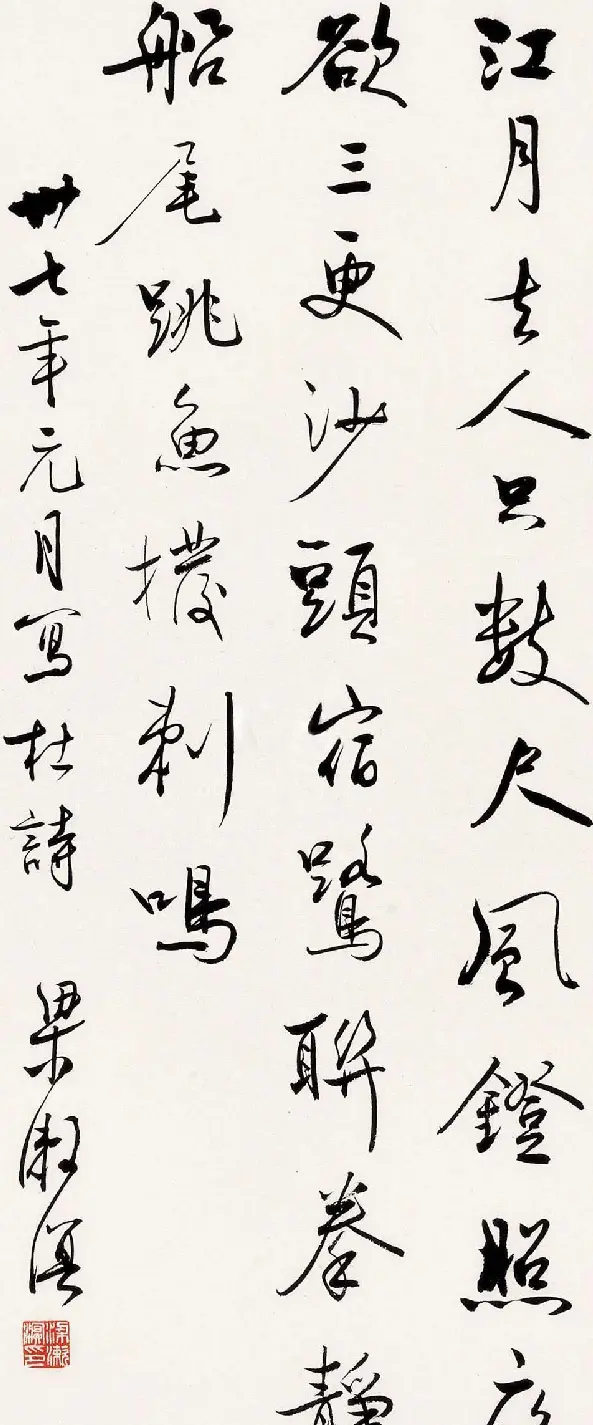 江月去人只數尺風鐙照
欲三更沙頭宿鷺聯拳靜
船尾跳魚撥剌鳴
卅七年元月寫杜詩 梁漱溟
梁漱溟印